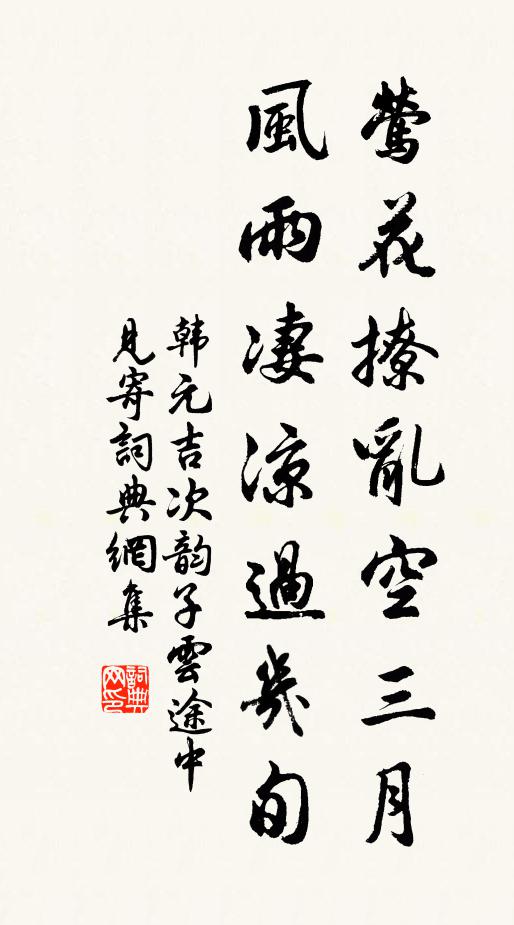 鶯花撩亂空三月
風雨凄涼過幾旬
韩元吉次韵子雲途中
見寄詞典網集
詞典
网印